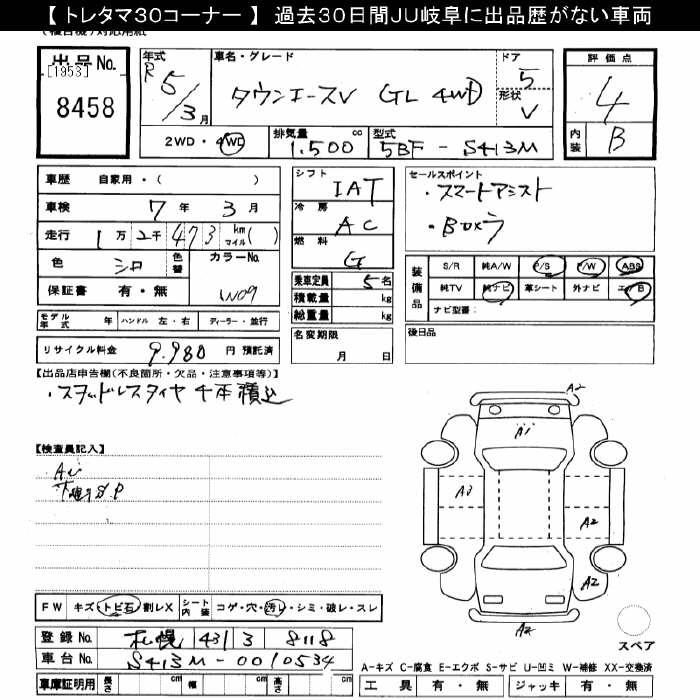 【 トレタマ30コーナー 】 過去30日間JU岐阜に出品歴がない車両
出品No. [1953] 8458
年式 R5/3月 車名・グレード タウンエースV GL 4WD ドア 5 形状 V
評価点 4 内装 B
2WD・4WD 排気量 1.500 cc 型式 5BF-S413M
車歴 自家用・( )
車検 7年 3月
走行 1万 2千 473 km マイル( )
色 シロ 色替 カラーNo. W09
保証書 有・無
モデル年式 年 ハンドル 左・右 ディーラー・並行
リサイクル料金 9.980 円 預託済
シフト IAT
冷房 AC
燃料 G
乗車定員 5名
積載量 kg
総重量 kg
名変期限 月 日
セールスポイント
・スマートアシスト
・Boxラ
装備品 S/R 純A/W P/S P/W ABS
純TV 純ナビ 革シート 外ナビ エアB
ナビ型番:
後日品
【出品店申告欄(不良箇所・欠品・注意事項等)】
・スタッドレスタイヤ 4本積込
【検査員記入】
A2
A1
A3
A2
A2
A2
FW キズ・トビ石・割レX シート内装 コゲ・穴・汚レ・シミ・破レ・スレ
登録No. 札幌 431 3 8118
車台No. S413M-0010534
スペア
A-キズ C-腐食 E-エクボ S-サビ U-凹ミ W-補修 XX-交換済
車庫証明用 長さ cm 幅 cm 高さ cm
工具 有・無 ジャッキ 有・無